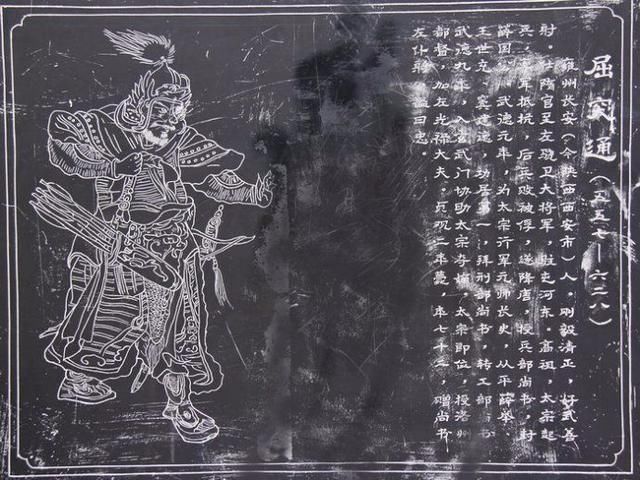 屈突通（五五七—六二八）
雍州长安（今陕西西安市）人。刚毅清正，好武善
射。仕隋官至左骁卫大将军，驻屯河东。高祖、太宗起
兵，率军抵抗，后兵败被俘，遂降唐，授兵部尚书，封
国公。武德元年，为太宗行军元帅长史，从平薛举、
王世充、窦建德，功居第一，拜刑部尚书，转工部尚书
武德九年，入玄武门协助太宗夺嫡，太宗即位，授洛州
都督，加左光禄大夫。贞观二年薨，年七十二，赠尚书
左仆射，谥曰忠。